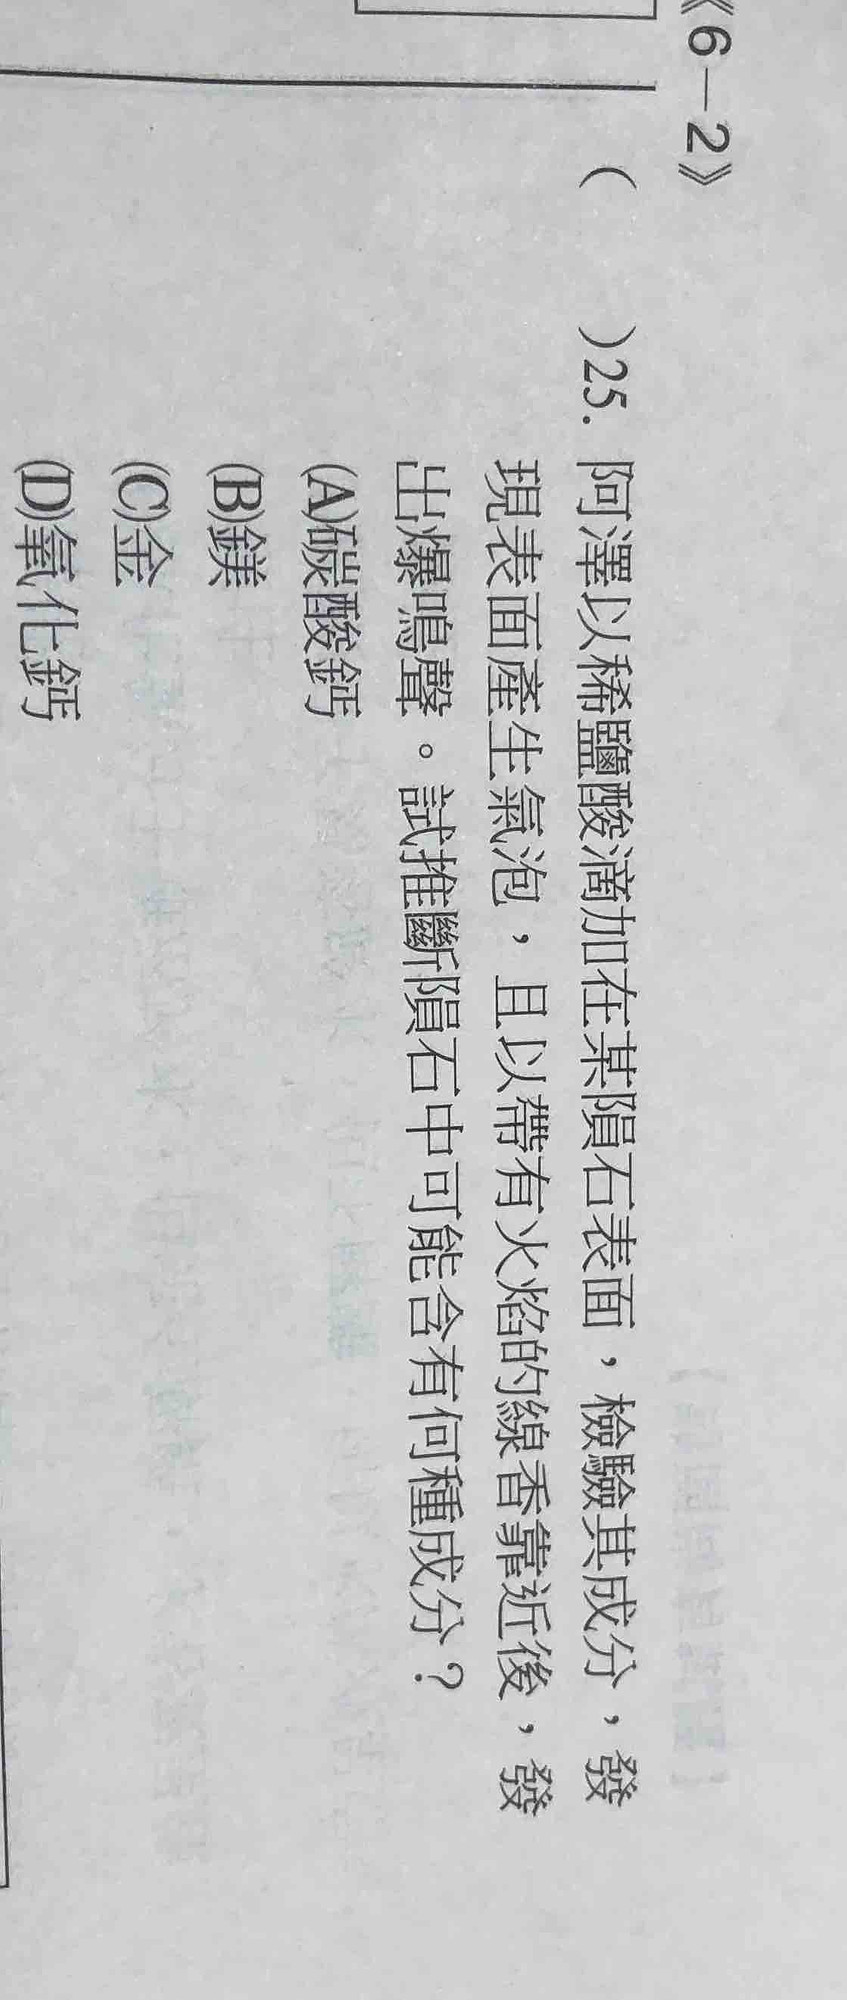 《6－2》
(　　)25. 阿澤以稀鹽酸滴加在某隕石表面，檢驗其成分，發
現表面產生氣泡，且以帶有火焰的線香靠近後，發
出爆鳴聲。試推斷隕石中可能含有何種成分？
(A)碳酸鈣
(B)鎂
(C)金
(D)氧化鈣